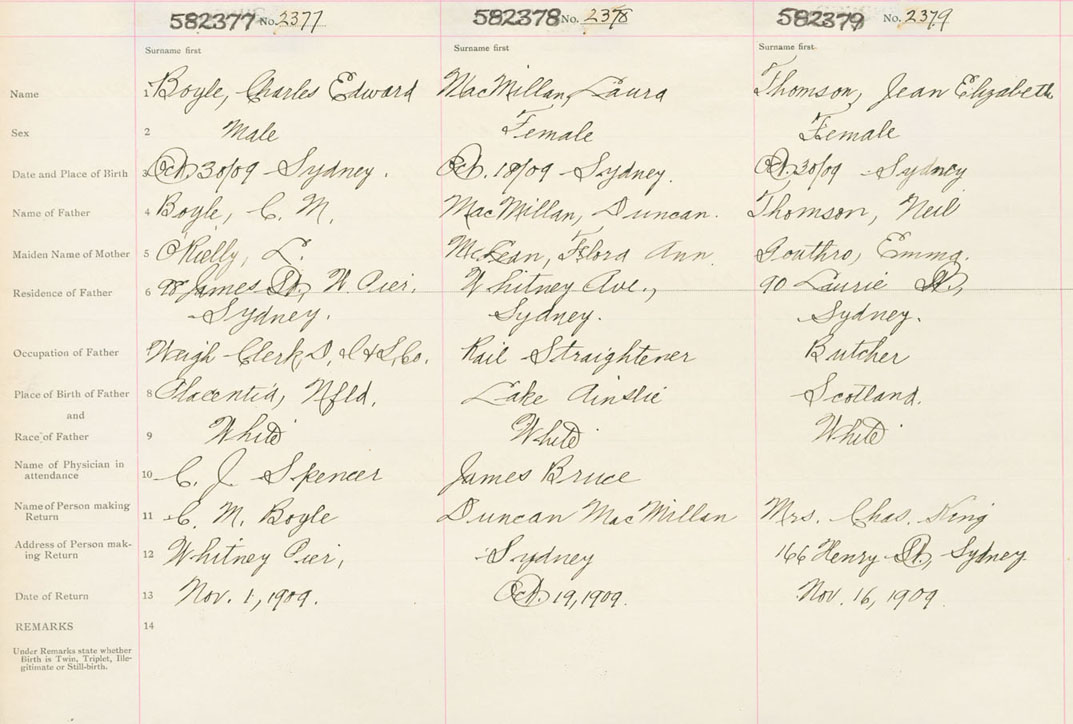 582377 No. 2377 582378 No. 2378 582379 No. 2379
Surname first Surname first Surname first
Name 1 Boyle, Charles Edward MacMillan, Laura Thomson, Jean Elizabeth
Sex 2 Male Female Female
Date and Place of Birth 3 Oct. 30/09 Sydney. Oct. 18/09 - Sydney. Oct. 30/09 Sydney
Name of Father 4 Boyle, C. M. MacMillan, Duncan. Thomson, Neil
Maiden Name of Mother 5 O'Rielly, L. McLean, Flora Ann. Gouthro, Emma.
Residence of Father 6 98 James St., W Pier, Whitney Ave., 90 Laurie St.,
Sydney. Sydney. Sydney.
Occupation of Father Weigh Clerk D. I & S. Co. Rail Straightener Butcher
Place of Birth of Father 8 Placentia, Nfld. Lake Ainslie Scotland.
and
Race of Father 9 White White White
Name of Physician in
attendance 10 C. J. Spencer James Bruce
Name of Person making
Return 11 C. M. Boyle Duncan MacMillan Mrs. Chas. King
Address of Person mak-
ing Return 12 Whitney Pier, Sydney 166 Henry St., Sydney
Date of Return 13 Nov. 1, 1909. Oct. 19, 1909. Nov. 16, 1909
REMARKS 14
Under Remarks state whether
Birth is Twin, Triplet, Ille-
gitimate or Still-birth.